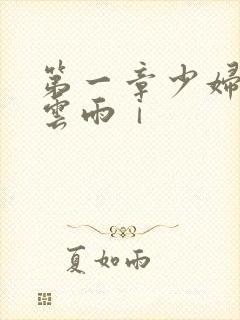 第一章少婦
雲雨｜
夏如雨